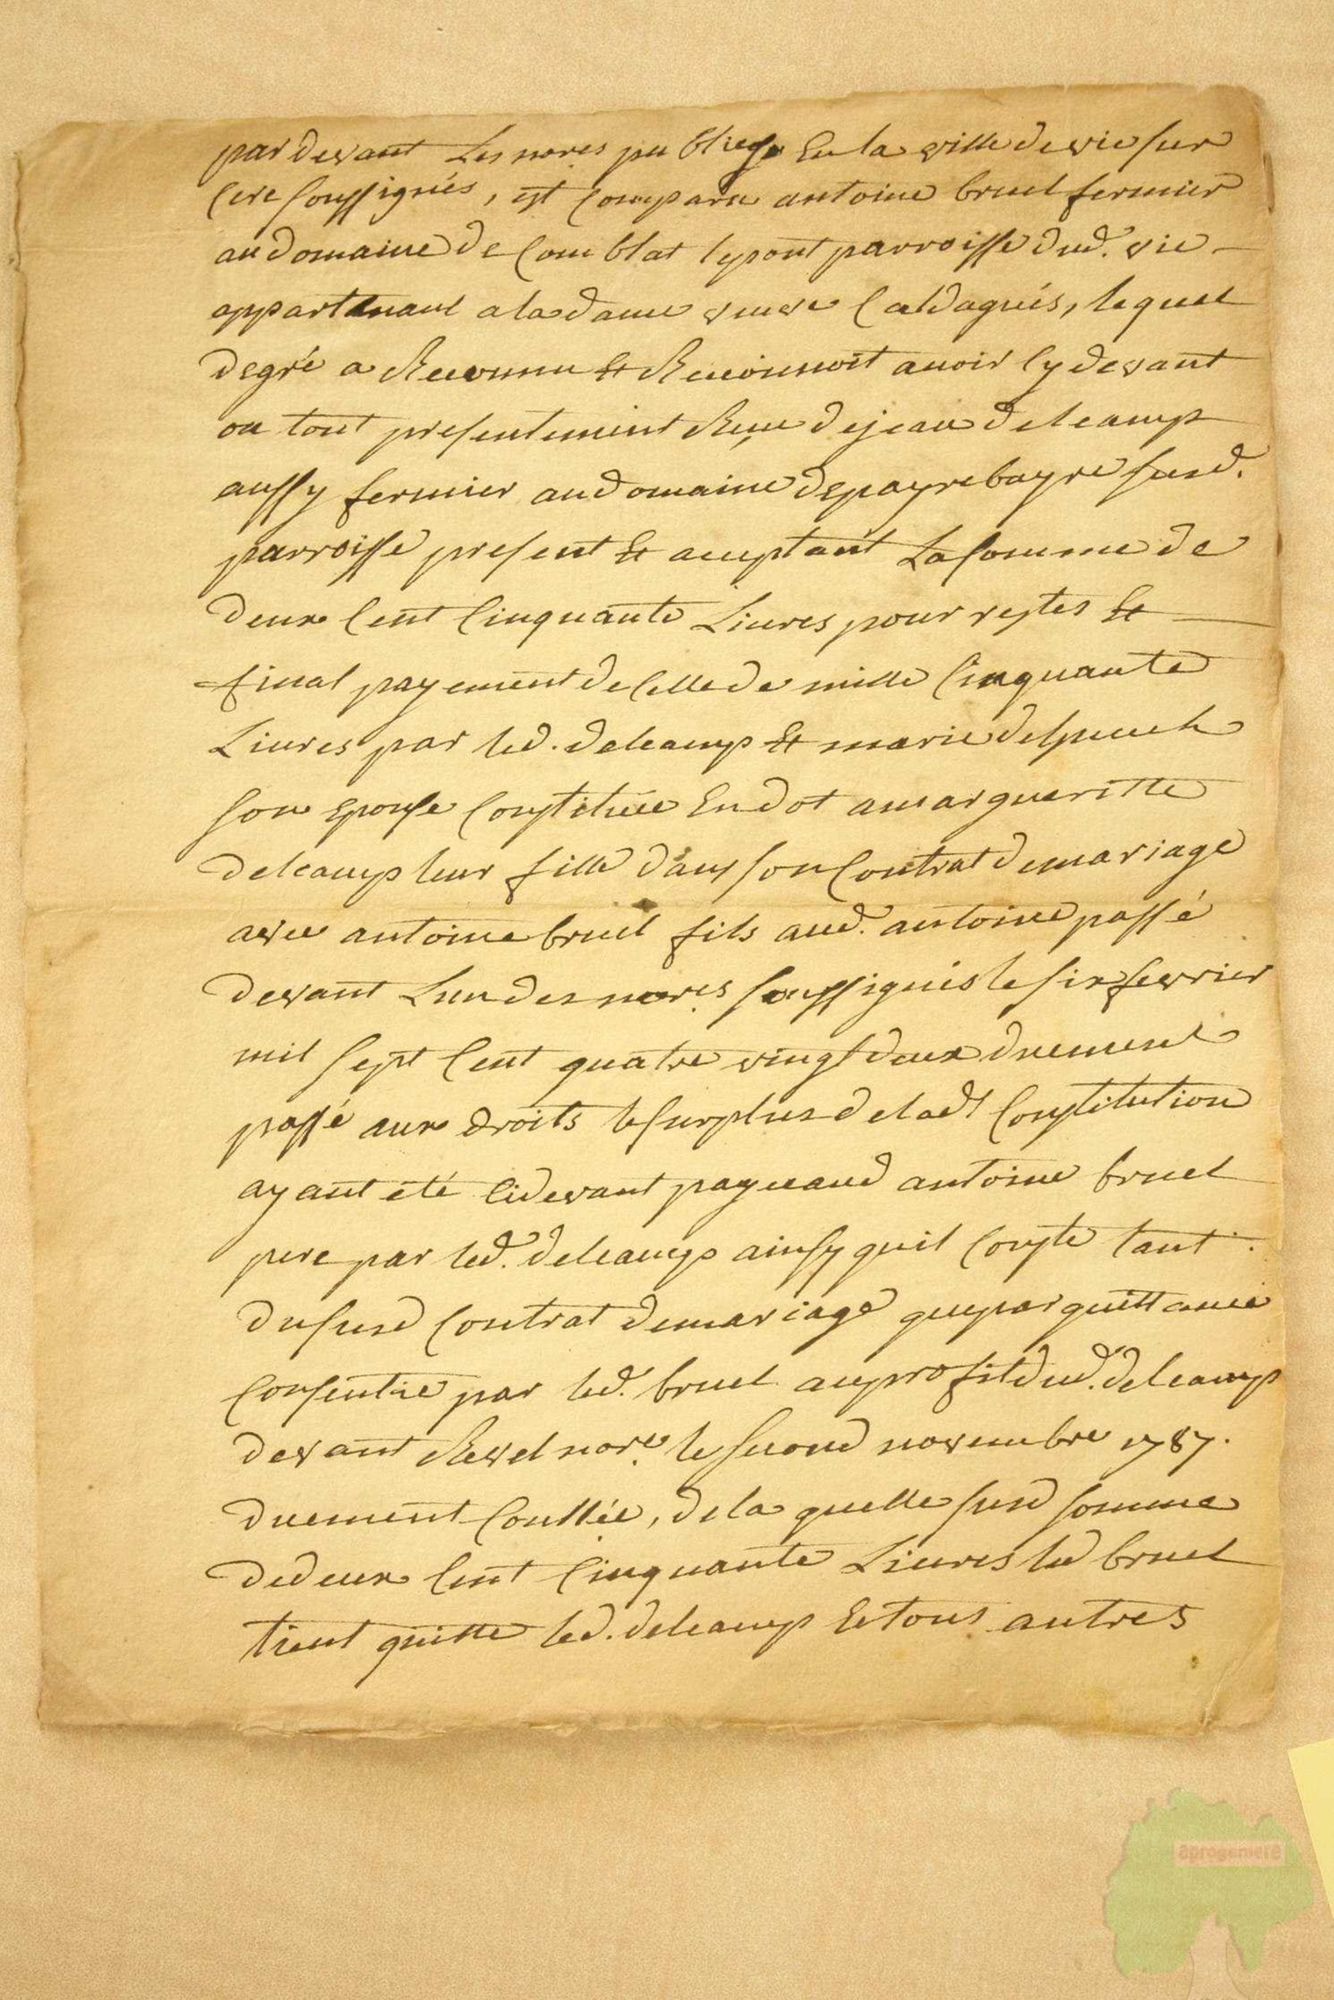 pardevant Les nores publiqs En la ville de vic sur
Cere soussignés, est Comparu antoine bruel fermier
au domaine de Comblat le pont parroisse dud. vic
appartenant a la dame veuve Caldagués, lequel
de gré a Reconnu Et Reconnoit avoir Cy devant
ou tout presentement Reçu de jean delcamp
aussy fermier au domaine de payrebayre susd.
parroisse present Et aceptant La somme de
deux Cent Cinquante Livres pour restes Et
final payement de Celle de mille Cinquante
Livres par led. delcamp Et marie delpuech
son Epouse Constituée En dot a margueritte
delcamp leur fille dans son Contrat de mariage
avec antoine bruel fils aud. antoine passé
devant L'un des nores soussignés le six fevrier
mil sept Cent quatre vingt deux duement
passé aux droits le surplus de lade Constitution
ayant été Cidevant payé aud antoine bruel
pere par led. delcamp ainsy quil Conste tant
du susd Contrat de mariage que par quittance
Consentie par led. bruel au profit dud. delcamp
devant Revel nore. le second novembre 1787.
duement Conllée, de la quelle susd somme
de deux Cent Cinquante Livres led bruel
tient quitte led. delcamp Et tous autres
aprogemere